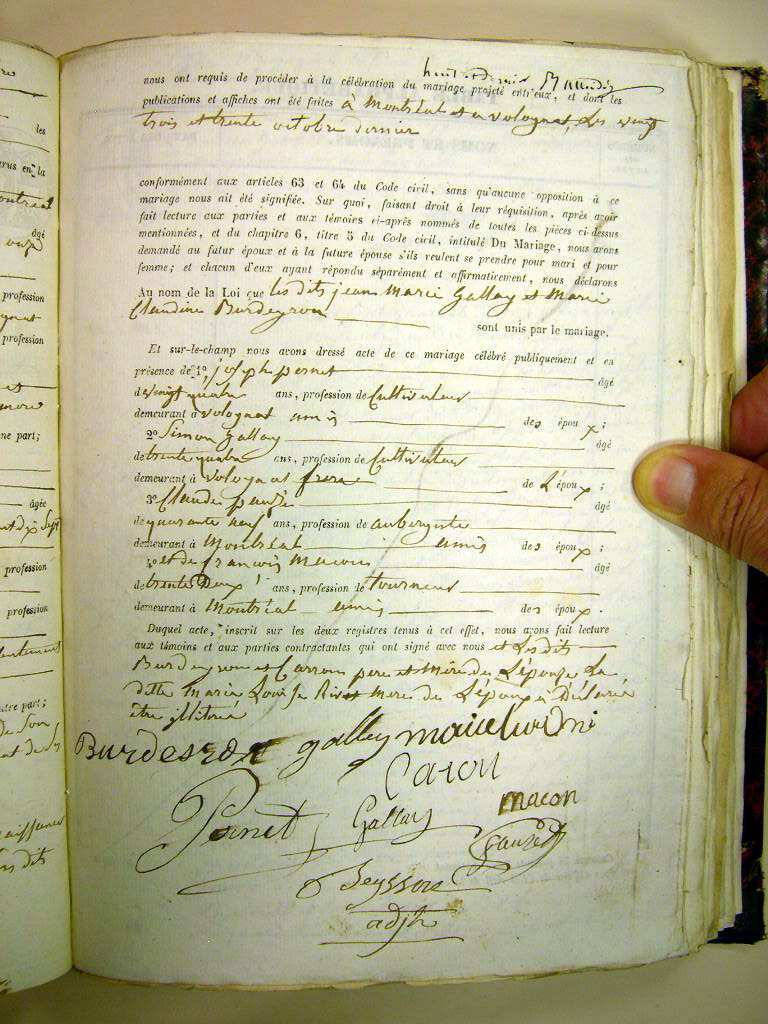 nous ont requis de procéder à la célébration du mariage projeté entr'eux, et dont les
publications et affiches ont été faites à Montréal et a volognat, Les vingt
trois et trente octobre dernier
conformément aux articles 63 et 64 du Code civil, sans qu'aucune opposition à ce
mariage nous ait été signifiée. Sur quoi, faisant droit à leur réquisition, après avoir
fait lecture aux parties et aux témoins ci-après nommés de toutes les pièces ci-dessus
mentionnées, et du chapitre 6, titre 5 du Code civil, intitulé Du Mariage, nous avons
demandé au futur époux et à la future épouse s'ils veulent se prendre pour mari et pour
femme; et chacun d'eux ayant répondu séparément et affirmativement, nous déclarons
Au nom de la Loi que les dits jean Marie Gallay et Marie
Claudine Burdeyron
sont unis par le mariage.
Et sur-le-champ nous avons dressé acte de ce mariage célébré publiquement et en
présence de 1º, joseph pernet âgé
de vingt quatre ans, profession de Cultivateur
demeurant à volognat amis des époux;
2º Simon Gallay âgé
de trente quatre ans, profession de Cultivateur
demeurant à volognat frere de L'époux;
3º Claude âgé
de quarante neuf ans, profession de aubergiste
demeurant à Montréal amis des époux;
4º et de françois Macon âgé
de trente Deux ans, profession de tourneur
demeurant à Montréal amis des époux.
Duquel acte, inscrit sur les deux registres tenus à cet effet, nous avons fait lecture
aux témoins et aux parties contractantes qui ont signé avec nous et Les dits
Burdeyron et Carron pere et Mére de L'épouse La
ditte Marie Louise Rivet Mere de L'époux a Déclaré
être illitéré
Burdesron galley
Caron
Pernet Gallay macon
Beyssou
adjt